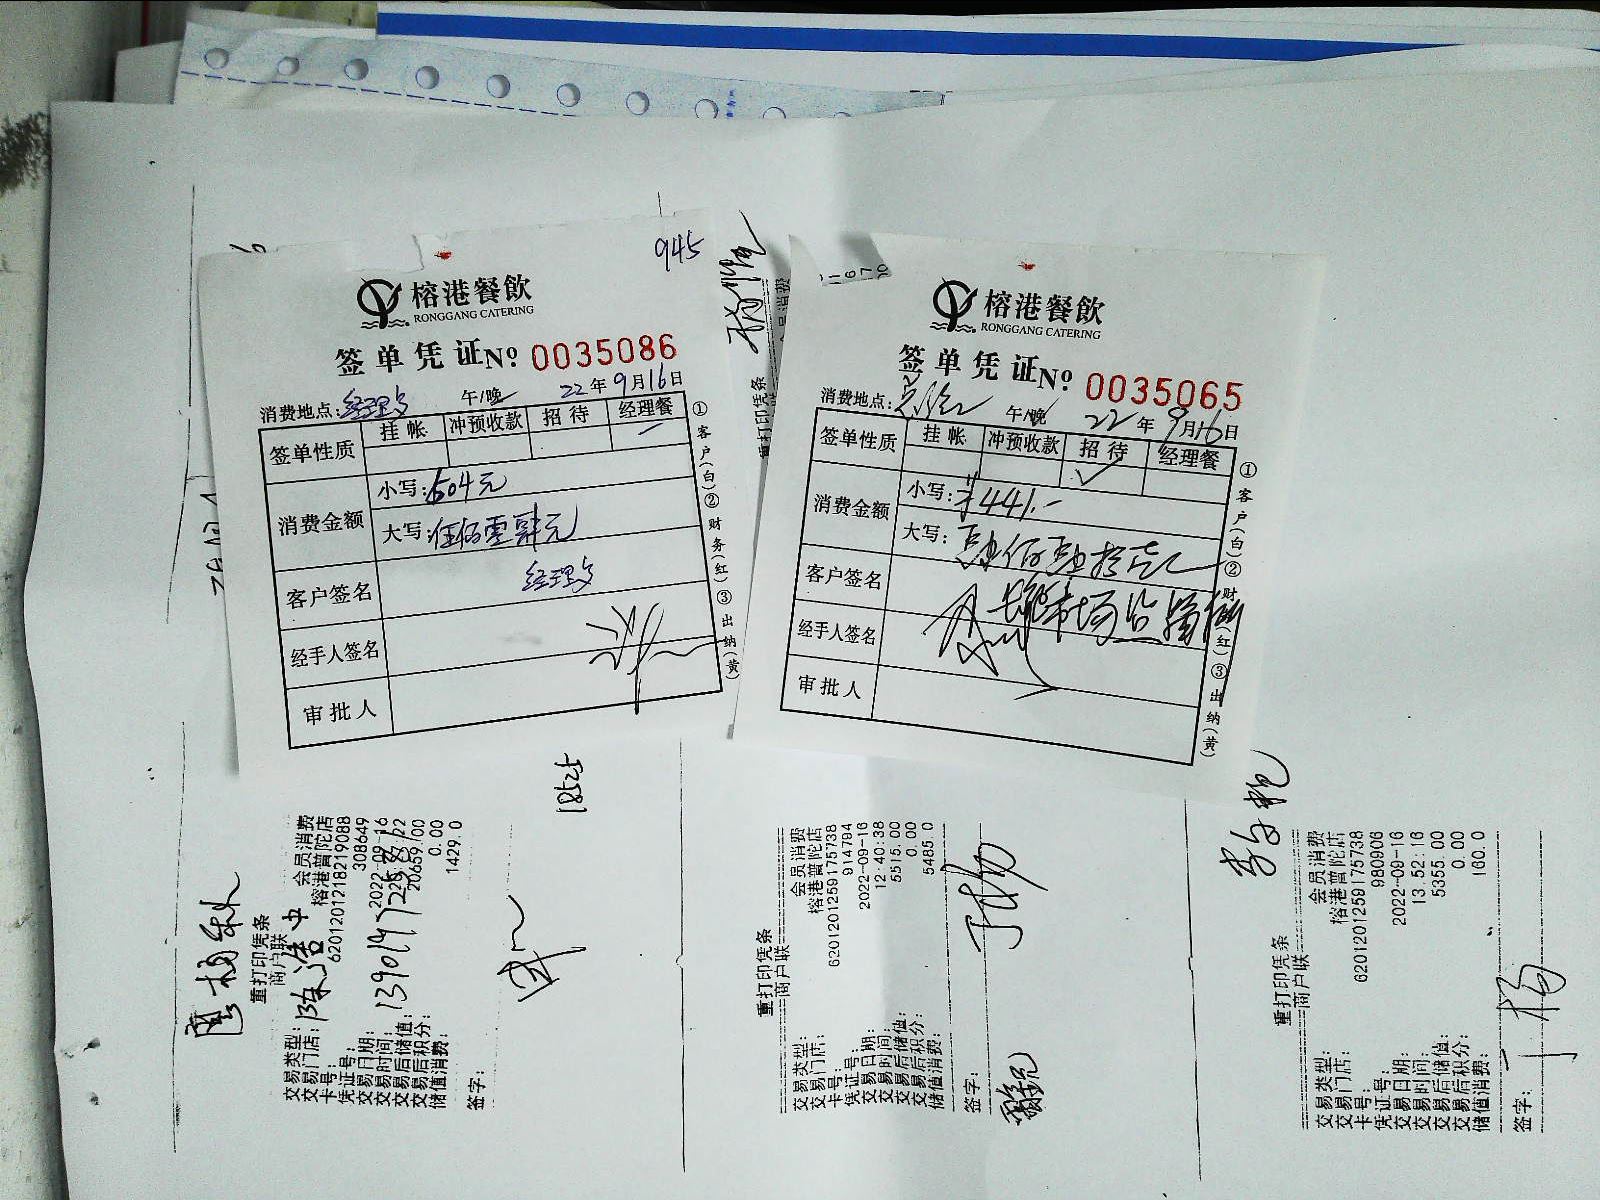 945
榕港餐飲
RONGGANG CATERING
签单凭证No. 0035086
消费地点: 经理 午/晚 22年9月16日
签单性质 挂帐 冲预收款 招待 经理餐
消费金额 小写: 504元
大写: 伍佰零肆元
客户签名 经理
经手人签名
审批人
①客户(白)②财务(红)③出纳(黄)
榕港餐飲
RONGGANG CATERING
签单凭证No. 0035065
消费地点: 午/晚 22年9月16日
签单性质 挂帐 冲预收款 招待 ✓ 经理餐
消费金额 小写: ¥441.-
大写: 肆佰肆拾壹元
客户签名
经手人签名
审批人
①客户(白)②财务(红)③出纳(黄)
重打印凭条
商户联
陈浩中
交易类型: 会员消费
交易门店: 榕港普陀店
卡号: 6201201218219088
凭证号: 308649
交易日期: 2022-09-16
交易时间:
交易后储值: 20659.00
交易后积分: 0.00
储值消费: 1429.0
签字:
18525
重打印凭条
商户联
交易类型: 会员消费
交易门店: 榕港普陀店
卡号: 6201201259175738
凭证号: 914794
交易日期: 2022-09-16
交易时间: 12:40:38
交易后储值: 5515.00
交易后积分: 0.00
储值消费: 5485.0
签字:
重打印凭条
商户联
交易类型: 会员消费
交易门店: 榕港普陀店
卡号: 6201201259175738
凭证号: 980906
交易日期: 2022-09-16
交易时间: 13:52:16
交易后储值: 5355.00
交易后积分: 0.00
储值消费: 160.0
签字:
重打印凭条